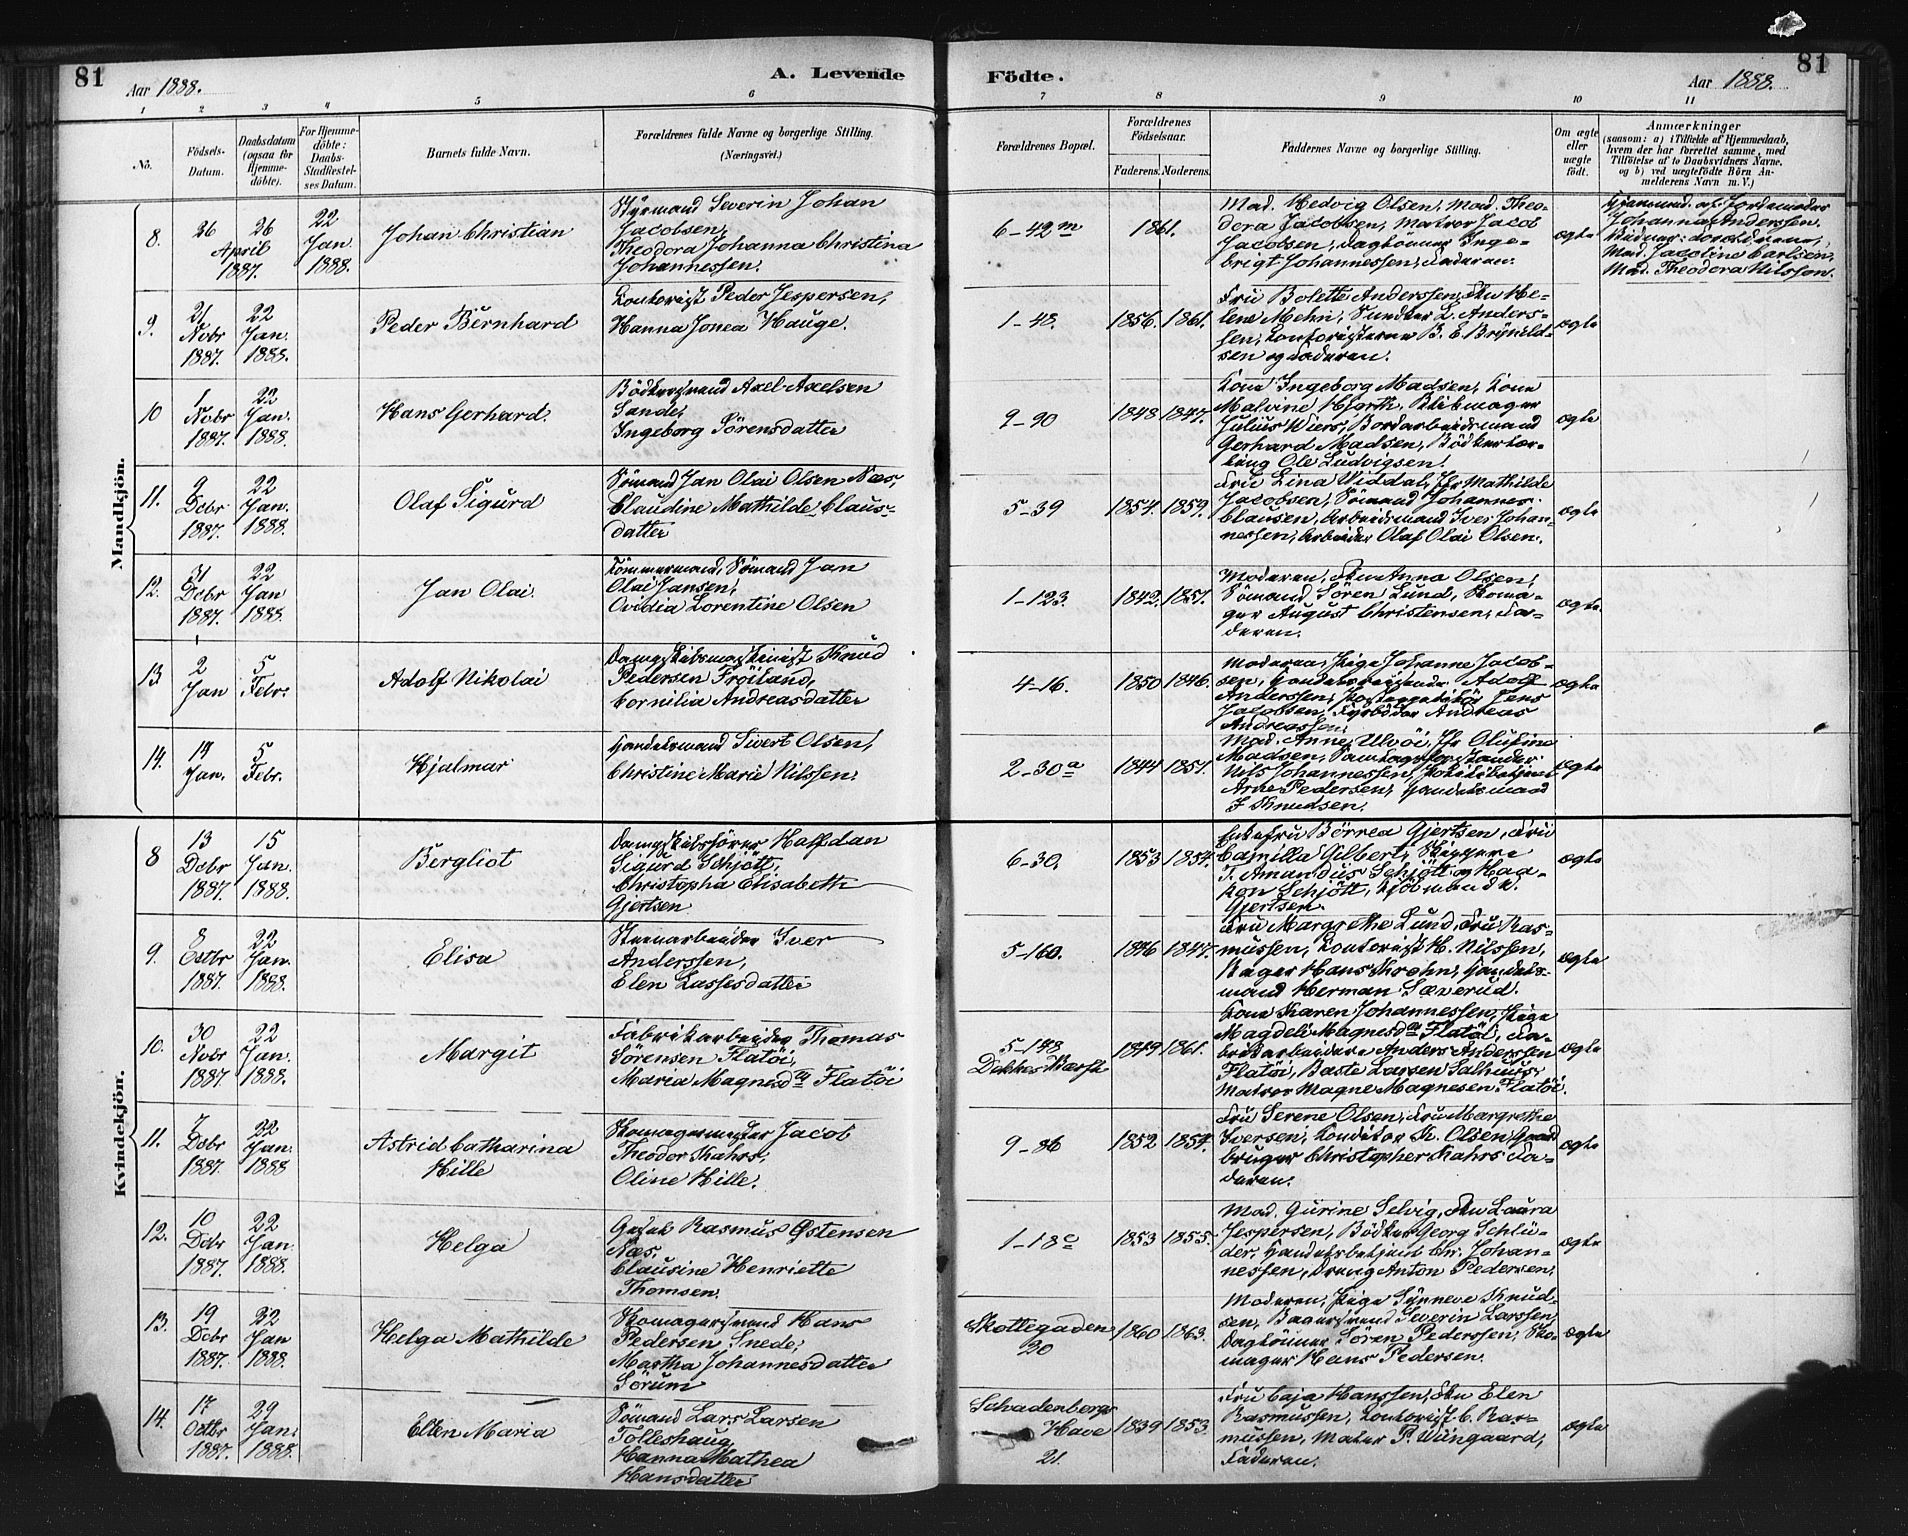 81
Aar 1888.
A. Levende
Födte.
Aar 1888.
81
1 2 3 4 5 6 7 8 9 10 11
No.
Födsels-
Datum.
Daabsdatum
(ogsaa for
Hjemme-
döbte).
For Hjemme-
döbte:
Daabs-
Stadfæstel-
ses Datum.
Barnets fulde Navn.
Forældrenes fulde Navne og borgerlige Stilling.
(Næringsvei.)
Forældrenes Bopæl.
Forældrenes
Födselsaar.
Faderens. Moderens.
Faddernes Navne og borgerlige Stilling.
Om ægte
eller
uægte
födt.
Anmærkninger
(saasom: a) i Tilfælde af Hjemmedaab,
hvem der har forrettet samme, med
Tilföielse af to Daabsvidners Navne.
og b) ved uægtefödte Börn An-
melderens Navn m. V.)
Mandkjön.
8.
26 April 1887.
26
22 Jan. 1888.
Johan Christian
Styrmand Severin Johan
Jacobsen,
Theodora Johanna Christina
Johannessen.
6-42m
1861.
Mad. Hedvig Olsen, Mad. Theo-
dora Jacobsen, Matros Jacob
Jacobsen, Dagtönner Inge-
brigt Johannessen, Faderen.
ægte
Hjemmed. af Jordemoder
Johanna Anderssen.
Vidner: Forældrene,
Mad. Jacoline Carlsen,
Mad. Theodora Nilsson.
9.
21 Nobr 1887.
22 Jan. 1888.
Peder Bernhard
Kontorist Peder Jespersen,
Hanna Jonea Hauge.
1-48.
1856. 1861.
Fru Bolette Anderssen, Fru He-
lene Mehn, L. Anders-
sen, Kontoristerne B. E. Brynild-
sen og Faderen.
ægte
10
1 Nobr 1887.
22 Jan. 1888.
Hans Gerhard.
Bödkersvend Axel Axelsen
Sande,
Ingeborg Sörensdatter
9-90
1848 1847.
Kone Ingeborg Madsen, Kone
Malvine Hjorth, Blikmager
Julius Wiers, Bordarbeidsmand
Gerhard Madsen, Bödkerlær-
ling Ole Ludvigsen.
ægte
11.
9 Decbr 1887.
22 Jan. 1888.
Olaf Sigurd
Sömand Jan Olai Olsen Næs,
Claudine Mathilde Claus-
datter
5-39
1854. 1859.
Fru Lina Widdal, Fr. Mathilde
Jacobsen, Sömand Johannes
Clausen, Arbeidsmand Iver Johan-
nessen, Arbeider Olaf Olai Olsen.
ægte
12.
31 Decbr 1887.
22 Jan 1888.
Jan Olai.
Tömmermand, Sömand Jan
Olai Jansen,
Ovidia Lorentine Olsen
1-123.
1842. 1851.
Moderen, Fru Anna Olsen,
Sömand Sören Lund, Skoma-
ger August Christensen, Fa-
deren.
ægte
13
2 Jan
5 Febr.
Adolf Nikolai
Dampskibsmaskinist Knud
Pedersen Fröiland,
Cornilia Andreasdatter
4-16.
1850 1846.
Moderen, Pige Johanne Jacob-
sen, Handelsreisende Adolf
Anderssen, Jens
Jacobsen, Fyrböder Andreas
Andreassen.
ægte
14.
19 Jan.
5 Febr.
Hjalmar
Handelsmand Sivert Olsen,
Christine Marie Nilssen.
2-30a
1844 1851.
Mad. Anne Ulvöi, Fr. Olufine
Madsen,
Nils Johannessen, Politibetjent
Arne Pedersen, Handelsmand
J. Knudsen.
ægte
Kvindekjön.
8
13 Decbr 1887.
15 Jan. 1888.
Bergliot
Dampskibsförer Halfdan
Sigurd Schjött,
Christopha Elisabeth
Gjertsen
6-30.
1853 1854.
Enkefru Börrea Gjertsen, Fru
Camilla Gilbert, Skippere
T. Amandus Schjött og Haa-
kon Schjött, Kjöbmand
Gjertsen.
ægte
9.
8 Octbr 1887.
22 Jan. 1888.
Elisa
Stuearbeider Iver
Anderssen,
Elen Lassesdatter
5-160.
1846 1847.
Fru Margrethe Lund, Fru Ras-
mussen, Kontorist H. Nilssen,
Bager Hans Krohn, Handels-
mand Herman Sæverud.
ægte
10.
30 Nobr 1887.
22 Jan. 1888.
Margit
Fabrikarbeider Thomas
Sörensen Flatöi,
Maria Magnesdtr Flatöi
5-148
Dokkes Værft
1849 1861.
Kone Karen Johannessen, Pige
Magdeli Magnesdtr Flatöi, Fa-
brikarbeidere Anders Anderssen
Flatöi, Baste Larsen Salhuus,
Matros Magne Magnesen Flatöi.
ægte
11.
7 Decbr 1887.
22 Jan. 1888.
Astrid Catharina
Hille
Skomagermester Jacob
Theodor Kahrs,
Oline Hille.
9-86
1852 1854.
Fru Serene Olsen, Fru Margrethe
Iversen, Konditor Th. Olsen, Gaard
bruger Christopher Kahrs Fa-
deren.
ægte
12.
10 Decbr 1887.
22 Jan. 1888.
Helga
Rasmus Östensen
Næs,
Clausine Henriette
Thomsen.
1-18c
1853 1855.
Mad. Gurine Selvig, Fru Laura
Jespersen, Bödker Georg Schlü-
der, Handelsbetjent Chr. Johan-
nessen, Dreng Anton Pedersen.
ægte
13.
19 Decbr 1887.
22 Jan 1888.
Helga Mathilde
Skomagersvend Hans
Pedersen Snede,
Martha Johannesdatter
Sörum
Skottegaden
20
1860 1863.
Moderen, Pige Synneve Knud-
sen, Bagersvend Severin Larssen,
Dagtönner Sören Pederssen, Sko-
mager Hans Pedersen.
ægte
14.
17 Octbr 1887.
29 Jan. 1888.
Ellen Maria
Sömand Lars Larsen
Tolleshaug,
Hanna Mathea
Hansdatter
Schadenbergs
Have
21.
1839 1853.
Fru Caja Hanssen, Fru Elen
Rasmussen, Kontorist C. Ras-
mussen, Maler P. Wiingaard,
Faderen.
ægte